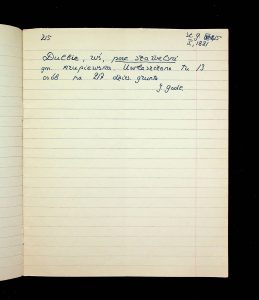 215
II, 1881
Dulbie, wś, pow. szawelski
gm. krupiewska. Uwłaszczono tu 13
osób na 217 dzies. gruntu
J. Godl.